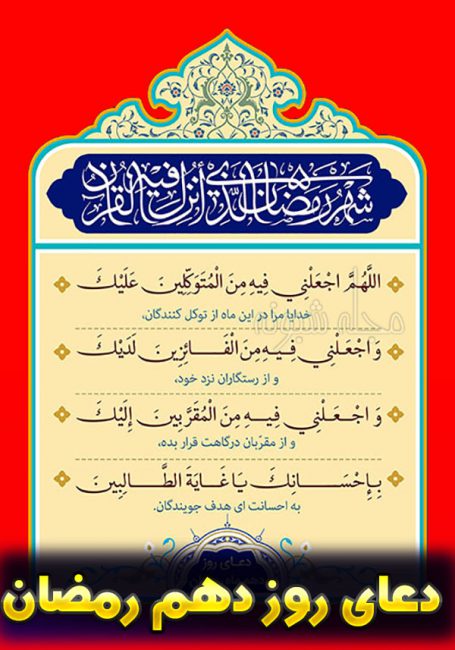 شهر رمضان الذي أنزل فيه القرآن
اللَّهُمَّ اجْعَلْنِي فِيهِ مِنَ الْمُتَوَكِّلِينَ عَلَيْكَ
خدایا مرا در این ماه از توکل کنندگان،
وَ اجْعَلْنِي فِيهِ مِنَ الْفَائِزِينَ لَدَيْكَ
و از رستگاران نزد خود،
وَ اجْعَلْنِي فِيهِ مِنَ الْمُقَرَّبِينَ إِلَيْكَ
و از مقرّبان درگاهت قرار بده،
بِإِحْسَانِكَ يَا غَايَةَ الطَّالِبِينَ
به احسانت ای هدف جویندگان.
مجله شیونه
دعای روز
دعای روز دهم رمضان